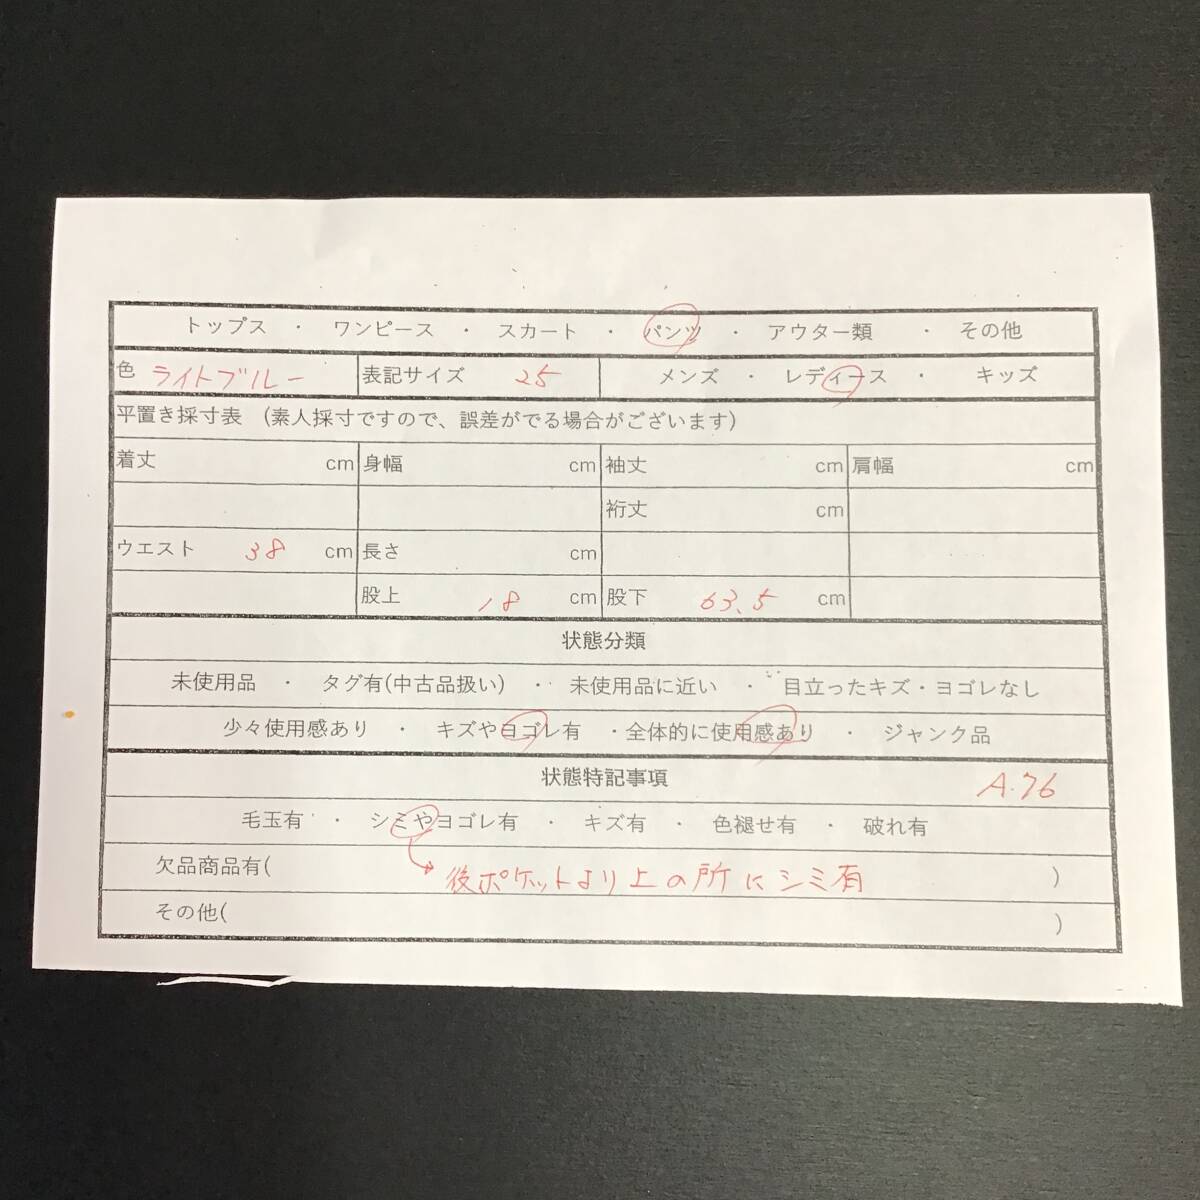 トップス ・ ワンピース ・ スカート ・ パンツ ・ アウター類 ・ その他
色 ライトブルー 表記サイズ 25 メンズ ・ レディース ・ キッズ
平置き採寸表 (素人採寸ですので、誤差がでる場合がございます)
着丈 cm 身幅 cm 袖丈 cm 肩幅 cm
裄丈 cm
ウエスト 38 cm 長さ cm
股上 18 cm 股下 63.5 cm
状態分類
未使用品 ・ タグ有(中古品扱い) ・ 未使用品に近い ・ 目立ったキズ・ヨゴレなし
少々使用感あり ・ キズやヨゴレ有 ・全体的に使用感あり ・ ジャンク品
状態特記事項 A.76
毛玉有 ・ シミやヨゴレ有 ・ キズ有 ・ 色褪せ有 ・ 破れ有
欠品商品有( 後ポケットより上の所にシミ有 )
その他( )